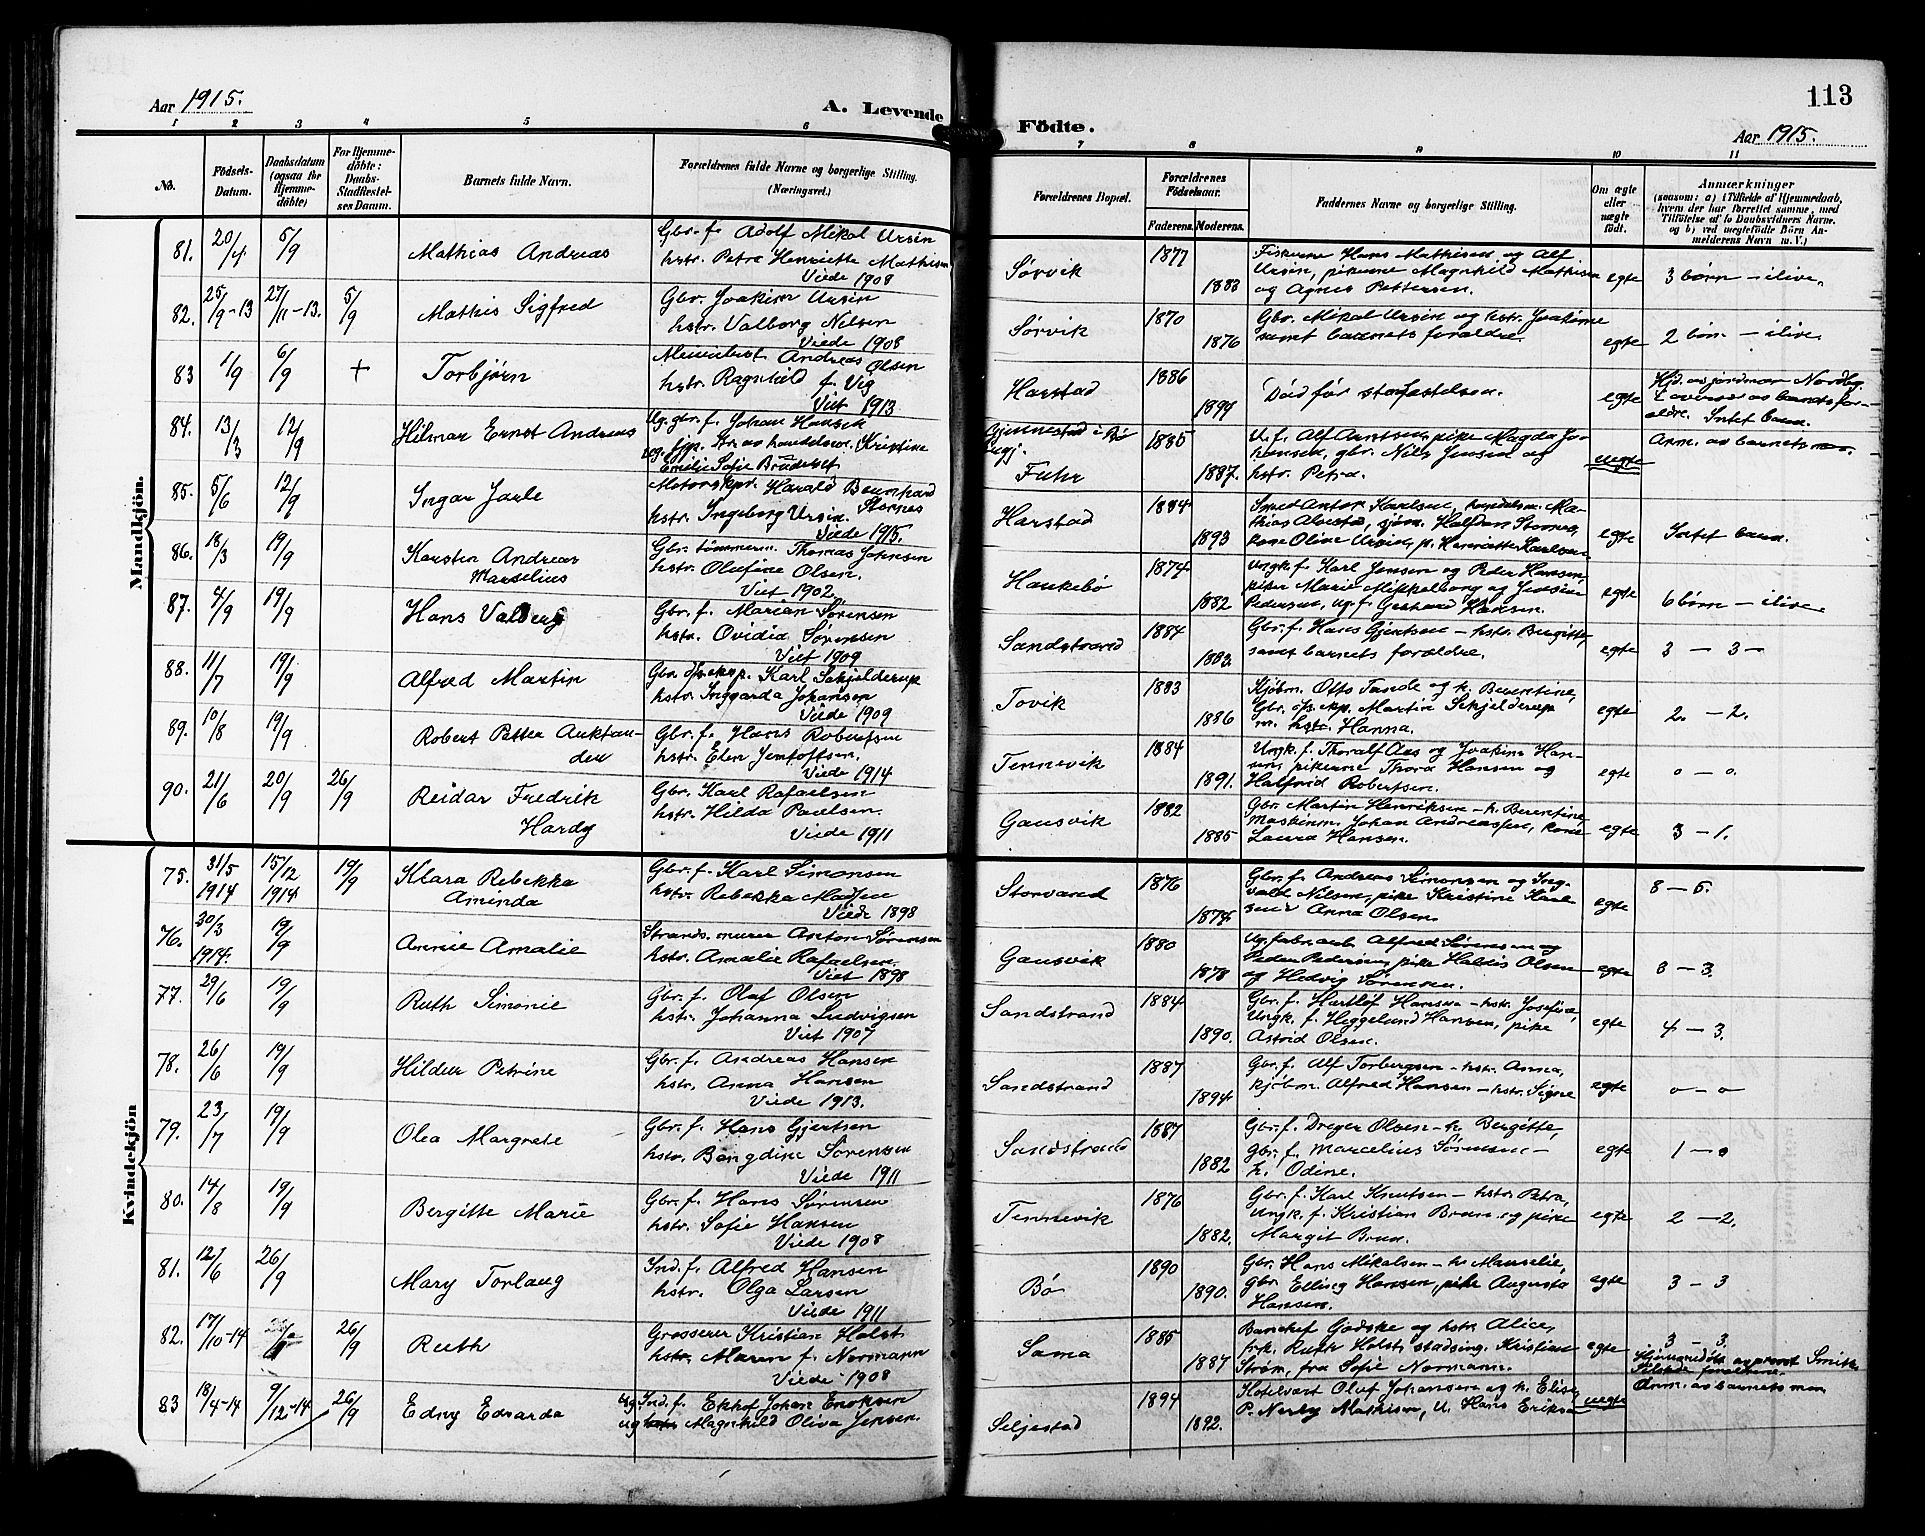 Aar 1915.
A. Levende
Födte.
113
Aar 1915.
1 2 3 4 5 6 7 8 9 10 11
No. Födsels-Datum. Daabsdatum (ogsaa for Hjemmedöbte) For Hjemmedöbte: Daabs-Stadfæstelses Datum. Barnets fulde Navn. Forældrenes fulde Navne og borgerlige Stilling. (Næringsvei.)
Forældrenes Bopæl. Forældrenes Födselsaar. Faderens. Moderens. Faddernes Navne og borgerlige Stilling. Om ægte eller uægte födt. Anmærkninger
Mandkjön.
81. 20/4 5/9 Mathias Andreas
Gbr. f. Adolf Mikal Ursin
hstr. Petra Henriette Mathisen
Viede 1908
Sørvik 1877 1883
Fiskerne Hans Mathisen og Alf
Ursin, pikerne Magnhild Mathisen
og Agnes Pettersen.
egte 3 børn – ilive.
82. 25/9-13 27/11-13. 5/9 Mathis Sigfred
Gbr. Joakim Ursin
hstr. Valborg Nilsen
Viede 1908
Sørvik 1870 1876
Gbr. Mikal Ursin og hstr. Joakime
samt barnets forældre
egte 2 børn – ilive
83 1/9 6/9 + Torbjørn
Andreas Olsen
hstr. Ragnhild f. Veg
Viet 1913
Harstad 1886 1894
Død før stadfæstelsen.
egte Hjd. av jordmor
Intet barn.
84. 13/3 12/9 Hilmar Ernst Andreas
Ug. gbr. f. Johan Hansen
Kristine
Emilie Sofie
Fuhr 1885 1887.
U. f. Alf Arntsen, pike Magda Jo-
hansen, gbr. Nils Jensen og
hstr. Petra.
uegte Anm. av barnets
85. 5/6 12/9 Ingar Jarle
Motorskpr. Harald Bernhard
Stornes
hstr. Ingeborg Ursin.
Viede 1915.
Harstad 1884 1893
Smed Anton Karlsen,
sjøm. Halfdan
kone Oline Ursin, p. Henriette Karlsen
egte Intet barn.
86. 18/3 19/9 Karsten Andreas
Marselius
Gbr. tømmerm. Thomas Johnsen
hstr. Olufine Olsen.
Viet 1902.
Haukebø 1874 1882
Ungk. f. Karl Jensen og Peder Hansen,
piker Marie Mikkelborg og Jensine
Pedersen, ug. f. Gerhard Hansen.
egte 6 børn – ilive
87. 4/9 19/9 Hans
Gbr. f. Marian Sørensen
hstr. Ovidia Sørensen
Viet 1909
Sandstrand 1884 1883.
Gbr. f. Hans Gjertsen – hstr. Bergitte,
samt barnets forældre.
egte 3 – 3 –
88. 11/7 19/9 Alfred Martin
Gbr. dpskp. Karl Schjelderup
hstr. Inggarda Johansen
Viede 1909
Tovik 1883 1886
Kjøbm. Otto Tande og h. Berentine,
Gbr. dpskp. Martin Schjelderup
m. hstr. Hanna.
egte 2. – 2.
89. 10/8 19/9 Robert Petter
Gbr. f. Hans Robertsen
hstr. Elen Jentoftsen.
Viede 1914
Tennevik 1884 1891.
Ungk. f. Thoralf Aas og Joakim Han-
sen, pikerne Thora Hansen og
Halfrid Robertsen.
egte 0 – 0.
90. 21/6 20/9 26/9 Reidar Fredrik
Hardy
Gbr. Karl Rafaelsen
hstr. Hilda Paulsen.
Viede 1911
Gausvik 1882 1885
Gbr. Martin Henriksen – h. Berentine,
Maskinm. Johan Andreassen, kone
Laura Hansen.
egte 3 – 1.
Kvindekjön
75. 31/5 1914 15/12 1914 19/9 Klara Rebekka
Aminda
Gbr. f. Karl Simonsen
hstr. Rebekka Madsen
Viede 1898
Storvand 1876 1874
Gbr. f. Andreas Simonsen og Ing-
vald Nilsen, pike Kristine Karl-
sen & Anna Olsen.
egte 8 – 5.
76. 30/3 1914. 19/9 Annie Amalie
Anton Sørensen
hstr. Amalie Rafaelsen.
Viet 1898
Gausvik 1880 1878
Ug. fabr. arb. Alfred Sørensen og
Peder Pedersen, pike Haldis Olsen
og Hedvig Sørensen.
egte 8 – 3.
77. 29/6 19/9 Ruth Simonie
Gbr. f. Olaf Olsen
hstr. Johanna Ludvigsen
Viet 1907
Sandstrand 1884 1890.
Gbr. f. Hartlöf Hansen – hstr. Josefine,
Ungk. f. Heggelund Hansen, pike
Astrid Olsen.
egte 4 – 3.
78. 26/6 19/9 Hildur Petrine
Gbr. f. Andreas Hansen
hstr. Anna Hansen
Viede 1913.
Sandstrand 1887 1894
Gbr. f. Alf Torbergsen – hstr. Anna,
kjøbm. Alfred Hansen – hstr. Signe
egte 0 – 0
79. 23/7 19/9 Olea Margrete
Gbr. f. Hans Gjertsen
hstr. Bergdine Sørensen
Viede 1911
Sandstrand 1887 1882
Gbr. f. Dreyer Olsen – h. Bergitte,
Gbr. f. Marcelius Sørensen –
h. Odine.
egte 1 – 0
80. 14/8 19/9 Bergitte Marie
Gbr. f. Hans Sørensen
hstr. Sofie Hansen
Viede 1908
Tennevik 1876 1882.
Gbr. f. Karl Knutsen – hstr. Petra,
Ungk. f. Kristian Brun og pike
Margit Brun.
egte 2 – 2.
81. 12/6 26/9 Mary Torlaug
Ind. f. Alfred Hansen
hstr. Olga Larsen
Viede 1911
Bø 1890 1890.
Gbr. Hans Mikalsen – h. Manselie,
gbr. Elling Hansen, pike Augusta
Hansen.
egte 3 – 3
82. 17/10-14 26/9 Ruth
Grosserer Kristian Holst
hstr. Maren f. Normann
Viede 1908
Sama 1885 1887
Godske og hstr. Alice,
frk. Ruth Holst, stadsing. Kristian
Strøm, fra Sofie Normann.
egte 3 – 3
Hjemmedøbt av provst Smitt
83 18/4-14 9/12-14 26/9 Edny Edvarda
Ug. Ind. f. Ekhof Johan Enoksen
ug. Magnhild Oliva Jensen.
Seljestad 1894 1892.
Hotelvært Oluf Johansen og h. Elise
P. Nerly Mathisen, U. Hans Eriksen
uegte Anm. av barnets mor